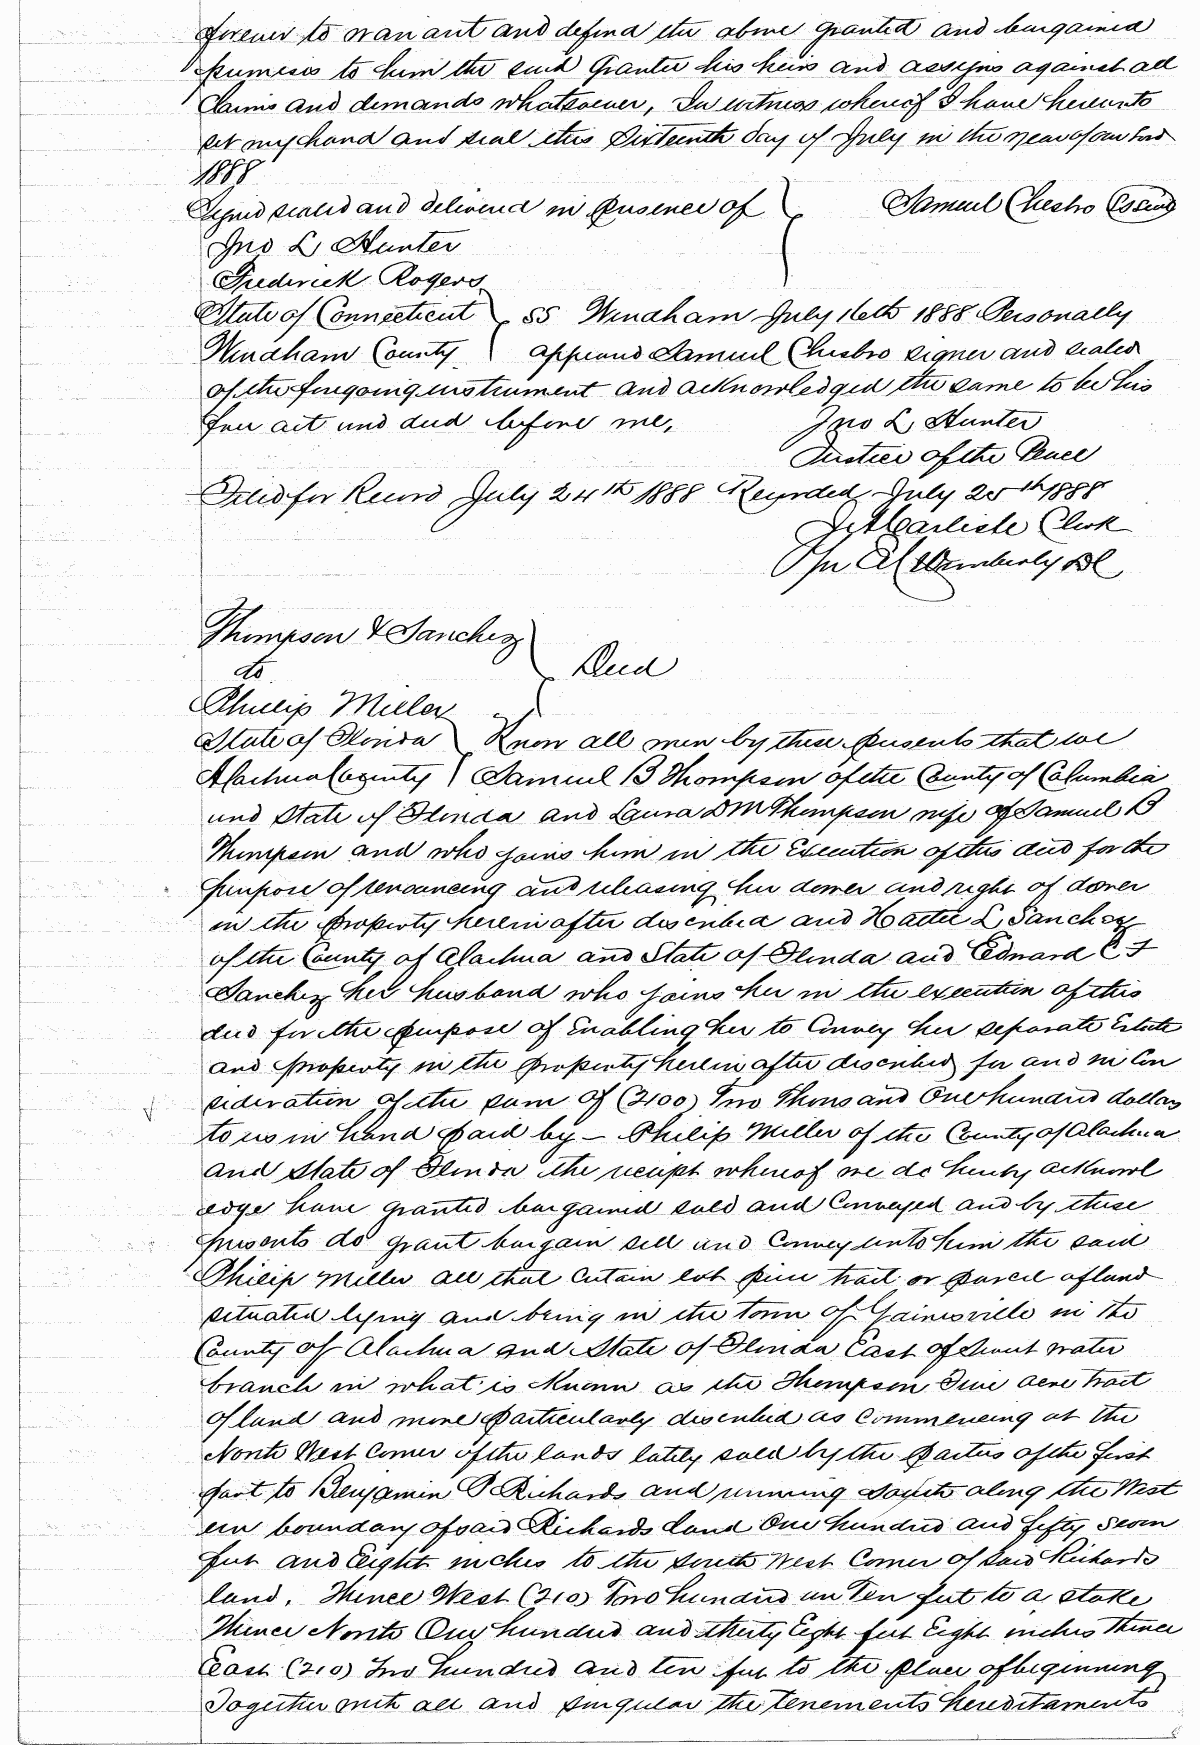 forever to warrant and defend the above granted and bargained
premises to him the said Grantee his heirs and assigns against all
Claims and demands whatsoever, In witness whereof I have hereunto
set my hand and seal this Sixteenth day of July in the year of our Lord
1888
Signed sealed and delivered in presence of Samuel Chesbro (Seal)
Jno L Hunter
Frederick Rogers
State of Connecticut SS Windham July 16th 1888 Personally
Windham County appeared Samuel Chesbro signer and sealed
of the foregoing instrument and acknowledged the same to be his
free act and deed before me, Jno L Hunter
Justice of the Peace
Filed for Record July 24th 1888 Recorded July 25th 1888
J A Carlisle Clerk
Per A C Wimberly DC
Thompson & Sanchez
to Deed
Phillip Miller
State of Florida Know all men by these presents that we
Alachua County Samuel B Thompson of the County of Columbia
and State of Florida and Laura D M Thompson wife of Samuel B
Thompson and who joins him in the Execution of this deed for the
purpose of renouncing and releasing her dower and right of dower
in the property herein after described and Hattie L Sanchez
of the County of Alachua and State of Florida and Edward C F
Sanchez her husband who joins her in the execution of this
deed for the purpose of Enabling her to Convey her separate Estate
and property in the property herein after described for and in Con
sideration of the sum of (2100) Two Thousand One hundred dollars
to us in hand paid by – Philip Miller of the County of Alachua
and State of Florida the receipt whereof we do hereby acknowl
edge have granted bargained sold and Conveyed and by these
presents do grant bargain sell and Convey unto him the said
Philip Miller all that Certain lot piece tract or parcel of land
situated lying and being in the town of Gainesville in the
County of Alachua and State of Florida East of Sweet water
branch in what is Known as the Thompson Five acre tract
of land and more particularly described as Commencing at the
North West Corner of the lands lately sold by the parties of the first
part to Benjamin P Richards and running South along the West
ern boundary of said Richards land One hundred and fifty seven
feet and Eight inches to the South West Corner of said Richards
land. Thence West (210) Two hundred an Ten feet to a stake
Thence North One hundred and thirty Eight feet Eight inches Thence
East (210) Two hundred and ten feet to the place of beginning
Together with all and singular the tenements hereditaments